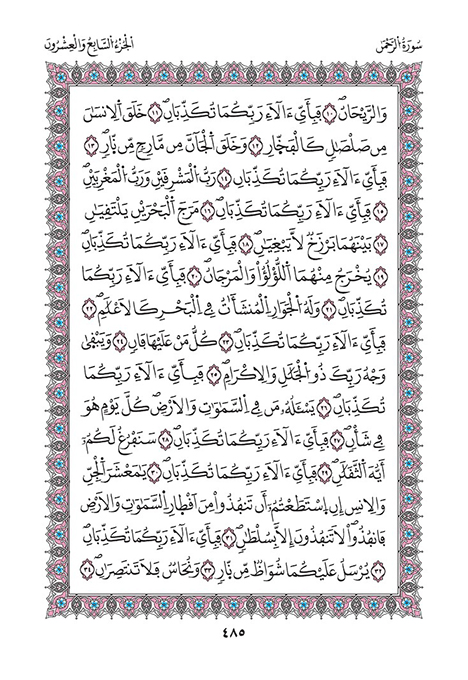 سُورَةُ الرَّحْمَٰن الجُزْءُ السَّابِعُ وَالْعِشْرُونَ
وَالرَّيْحَانُ ١٠ فَبِأَيِّ ءَالَآءِ رَبِّكُمَا تُكَذِّبَانِ ١١ خَلَقَ اَلِانسَٰنَ
مِن صَلْصَٰلٖ كَالْفَخّارِ ١٢ وَخَلَقَ اَلْجَآنَّ مِن مَّارِجٖ مِّن نّارٖ ١٣
فَبِأَيِّ ءَالَآءِ رَبِّكُمَا تُكَذِّبَانِ ١٤ رَبُّ اُلْمَشْرِقَيْنِ وَرَبُّ اُلْمَغْرِبَيْنِ
١٥ فَبِأَيِّ ءَالَآءِ رَبِّكُمَا تُكَذِّبَانِ ١٦ مَرَجَ اَلْبَحْرَيْنِ يَلْتَقِيَٰنِ
١٧ بَيْنَهُمَا بَرْزَخٞ لَّا يَبْغِيَٰنِ ١٨ فَبِأَيِّ ءَالَآءِ رَبِّكُمَا تُكَذِّبَانِ
١٩ يُخْرَجُ مِنْهُمَا اَللُّؤْلُؤُ وَالْمَرْجَانُ ٢٠ فَبِأَيِّ ءَالَآءِ رَبِّكُمَا
تُكَذِّبَانِ ٢١ وَلَهُ اُلْجَوَارِ اِلْمُنشَـَٔاتُ فِے اِلْبَحْرِ كَالَاعْلَٰمِ ٢٢
فَبِأَيِّ ءَالَآءِ رَبِّكُمَا تُكَذِّبَانِ ٢٣ كُلُّ مَنْ عَلَيْهَا فَانٖ ٢٤ وَيَبْقَىٰ
وَجْهُ رَبِّكَ ذُو اُلْجَلَٰلِ وَالِاكْرَامِ ٢٥ فَبِأَيِّ ءَالَآءِ رَبِّكُمَا
تُكَذِّبَانِ ٢٦ يَسْـَٔلُهُۥ مَن فِے اِلسَّمَٰوَٰتِ وَالَارْضِ كُلَّ يَوْمٍ هُوَ
فِے شَأْنٖ ٢٧ فَبِأَيِّ ءَالَآءِ رَبِّكُمَا تُكَذِّبَانِ ٢٨ سَنَفْرُغُ لَكُمُۥٓ
أَيُّهَ اَلثَّقَلَٰنِ ٢٩ فَبِأَيِّ ءَالَآءِ رَبِّكُمَا تُكَذِّبَانِ ٣٠ يَٰمَعْشَرَ اَلْجِنِّ
وَالِانسِ إِنِ اِسْتَطَعْتُمُۥٓ أَن تَنفُذُواْ مِنَ اَقْطِارِ اِلسَّمَٰوَٰتِ وَالَارْضِ
فَانفُذُواْ لَا تَنفُذُونَ إِلَّا بِسُلْطَٰنٖ ٣١ فَبِأَيِّ ءَالَآءِ رَبِّكُمَا تُكَذِّبَانِ
٣٢ يُرْسَلُ عَلَيْكُمَا شُوَاظٞ مِّن نّارٖ ٣٣ وَنُحَاسٞ فَلَا تَنتَصِرَانِ ٣٤
٤٨٥